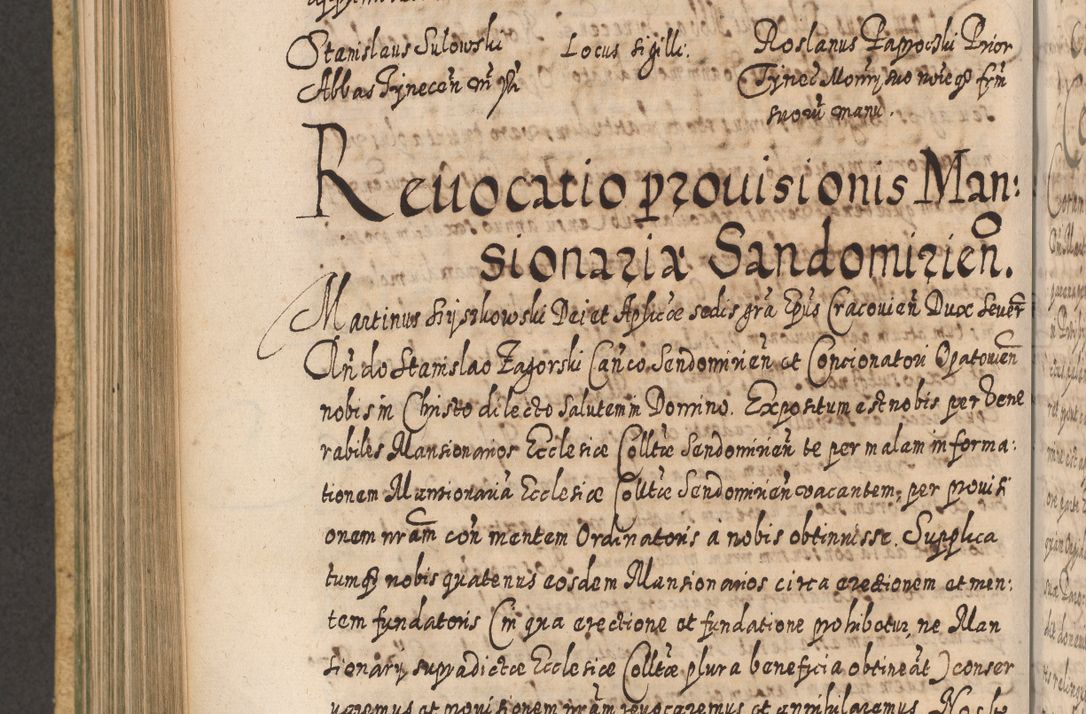 Stanislaus Sulowski Locus sigilli. Roslanus Papyocski Prior
Abbas Tynecen̄ m̄ p̄
Tynec̄ Mon̄ry suo noīe et frm̄
suorū manu.
Reuocatio prouisionis Man:
sionariæ Sandomirien̄.
Martinus Szyszkowski Dei et Aplicæ sedis grā Ep̄us Cracovien̄ Dux Severn̄
Ven̄do Stanislao Zagorski Can̄co Sendomirien̄ et Concionatori Opatovien̄
nobis in Christo dilecto Salutem in Domino. Expositum est nobis per Vene
rabiles Mansionarios Ecclesiæ Colltæ Sendomirien̄ te per malam informa:
tionem Mansionariā Ecclesiæ Colltæ Sendomirien̄ vacantem, per provisi
onem nrām con̄ mentem Ordinatoris à nobis obtinuisse. Supplica
tumq nobis quatenus eosdem Mansionarios circa erectionem et men:
tem fundatoris (in qua erectione et fundatione prohibetur, ne Man
sionarij supradictæ Ecclesiæ Colltæ plura beneficia obtineāt) conser
varemus et provisionem nrām revocaremus et annihilaremus. Nos